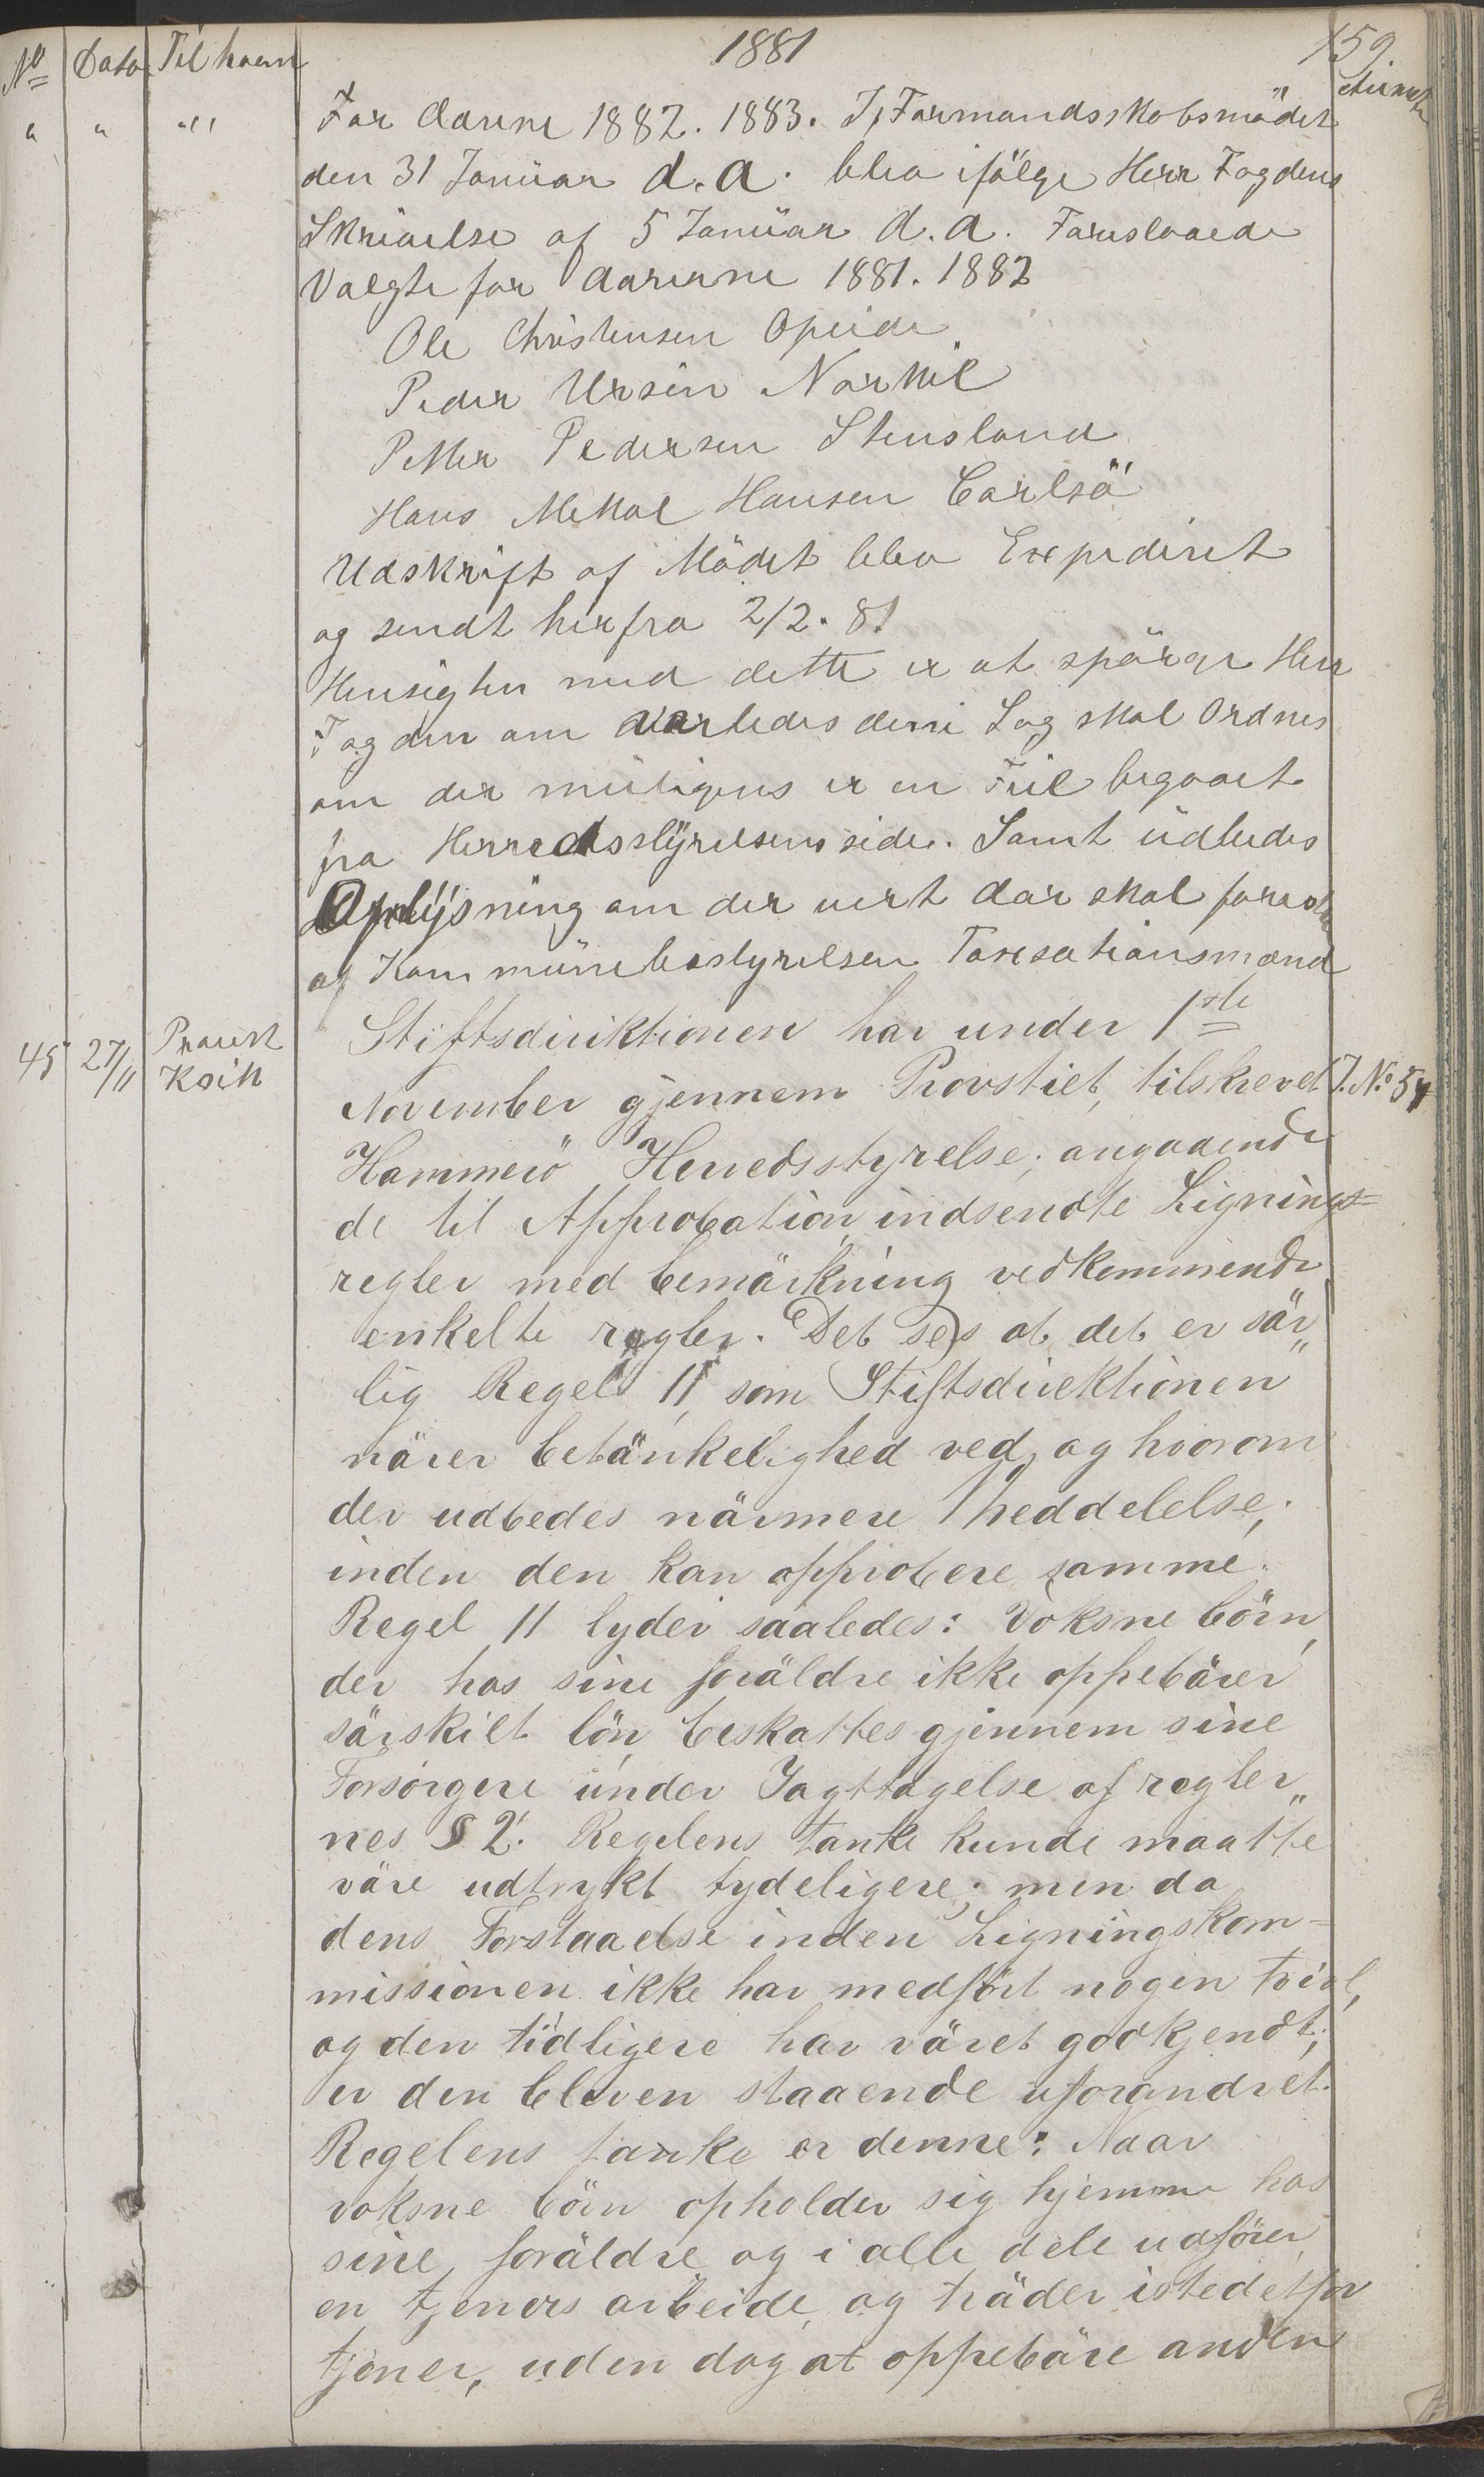 1881
159
No Dato Til hvem
" " "
For Aarene 1882. 1883. I, Formandsskabsmødet
den 31 Januar d.A. blev ifølge Herr Fogdens
Skrivelse af 5 Januar d.A. Foreslaaede
Valgte for Aarerne 1881. 1882
Ole Christensen Opeide
Peder Ursin Norkil
Petter Pedersen Stensland
Hans Mikkal Hansen Carlsö
Udskrift af Mödet blev Expederet
og sendt herfra 2/2. 81
Hensigten med dette er at spörge Herr
Fogden om vorledes deni Sag skal Ordnes
om der muligens er en Feil begaaet
fra Herredsstyrelsens side. Samt udbedes
Oplysning om der vert Aar skal foreslaa
af Kommunebestyrelsen Taxsationsmænd
45 27/11 Provst Koch
Stiftsdirektionen har under 1ste
November gjennem Provstiet, tilskrevet J. No 54
Hammerö Herredsstyrelse; angaaende
de til Approbation indsendte Lignings=
regler med bemärkning vedkommende
enkelte regler. Det ses at det er sär„
lig Regel 11 som Stiftsdirektionen
närer betänkelighed ved, og hvorom
der udbedes närmere Meddelelse;
inden den kan approbere samme.
Regel 11 lyder saaledes: Voksne börn,
der hos sine foräldre ikke oppebärer
särskilt lön, beskattes gjennem sine
Forsörgere under Iagttagelse af regler„
nes § 2. Regelens tanke kunde maatte
väre udtrykt tydeligere; men da
dens Forstaaelse inden Ligningskom=
missionen ikke har medfört nogen tvivl,
og den tidligere har väret godkjendt;
er den bleven staaende uforandret.
Regelens tanke er denne: Naar
voksne börn opholder sig hjemme hos
sine foräldre og i alle dele udförer
en tjeners arbeide, og träder istedetfor
tjener, uden dog at oppebäre anden